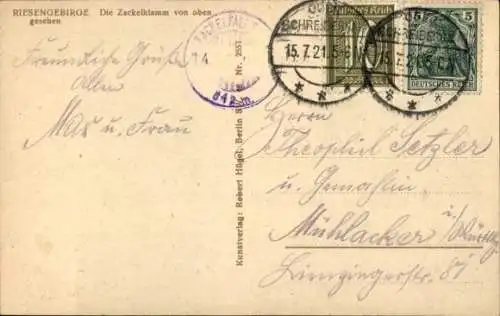 RIESENGEBIRGE Die Zackelklamm von oben
gesehen
Freundliche Grüße
Allen
Max u. Frau
Kunstverlag: Robert Hügel, Berlin S Nr. 2557
842 m.
SCHREIBERHAU
15.7.21.5-6
Deutsches Reich
10
5 5
DEUTSCHES REICH
Herrn
Theophil Setzler
u. Gemahlin
Mühlacker i/Württbg
Lienzingerstr. 81